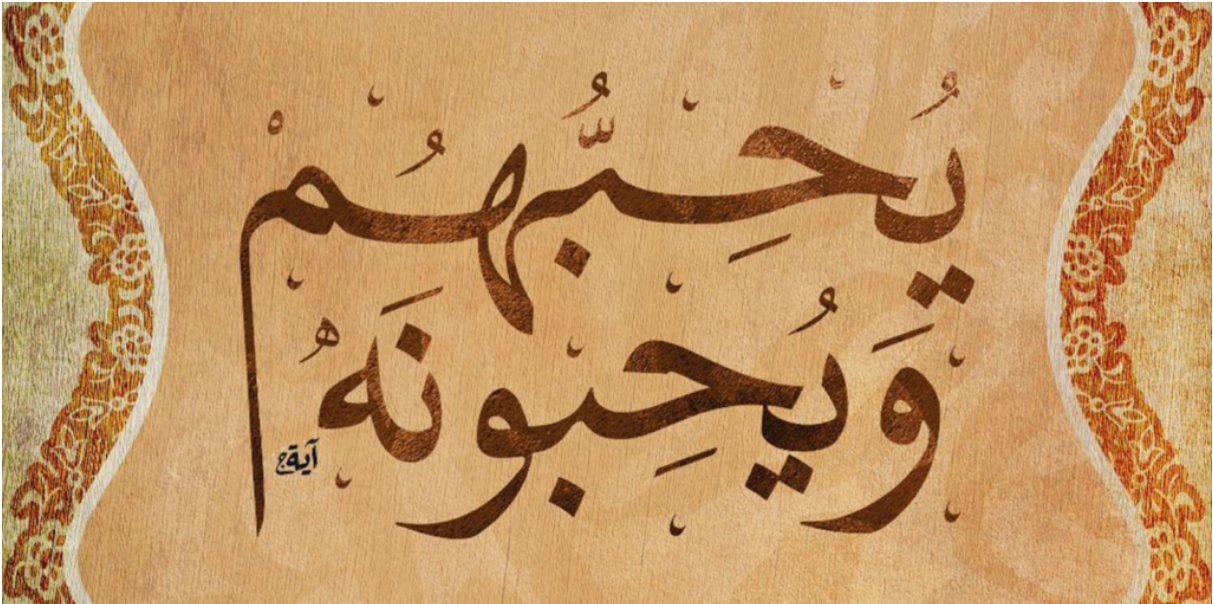 يُحِبُّهُمْ
وَيُحِبونَهُ
آية ج